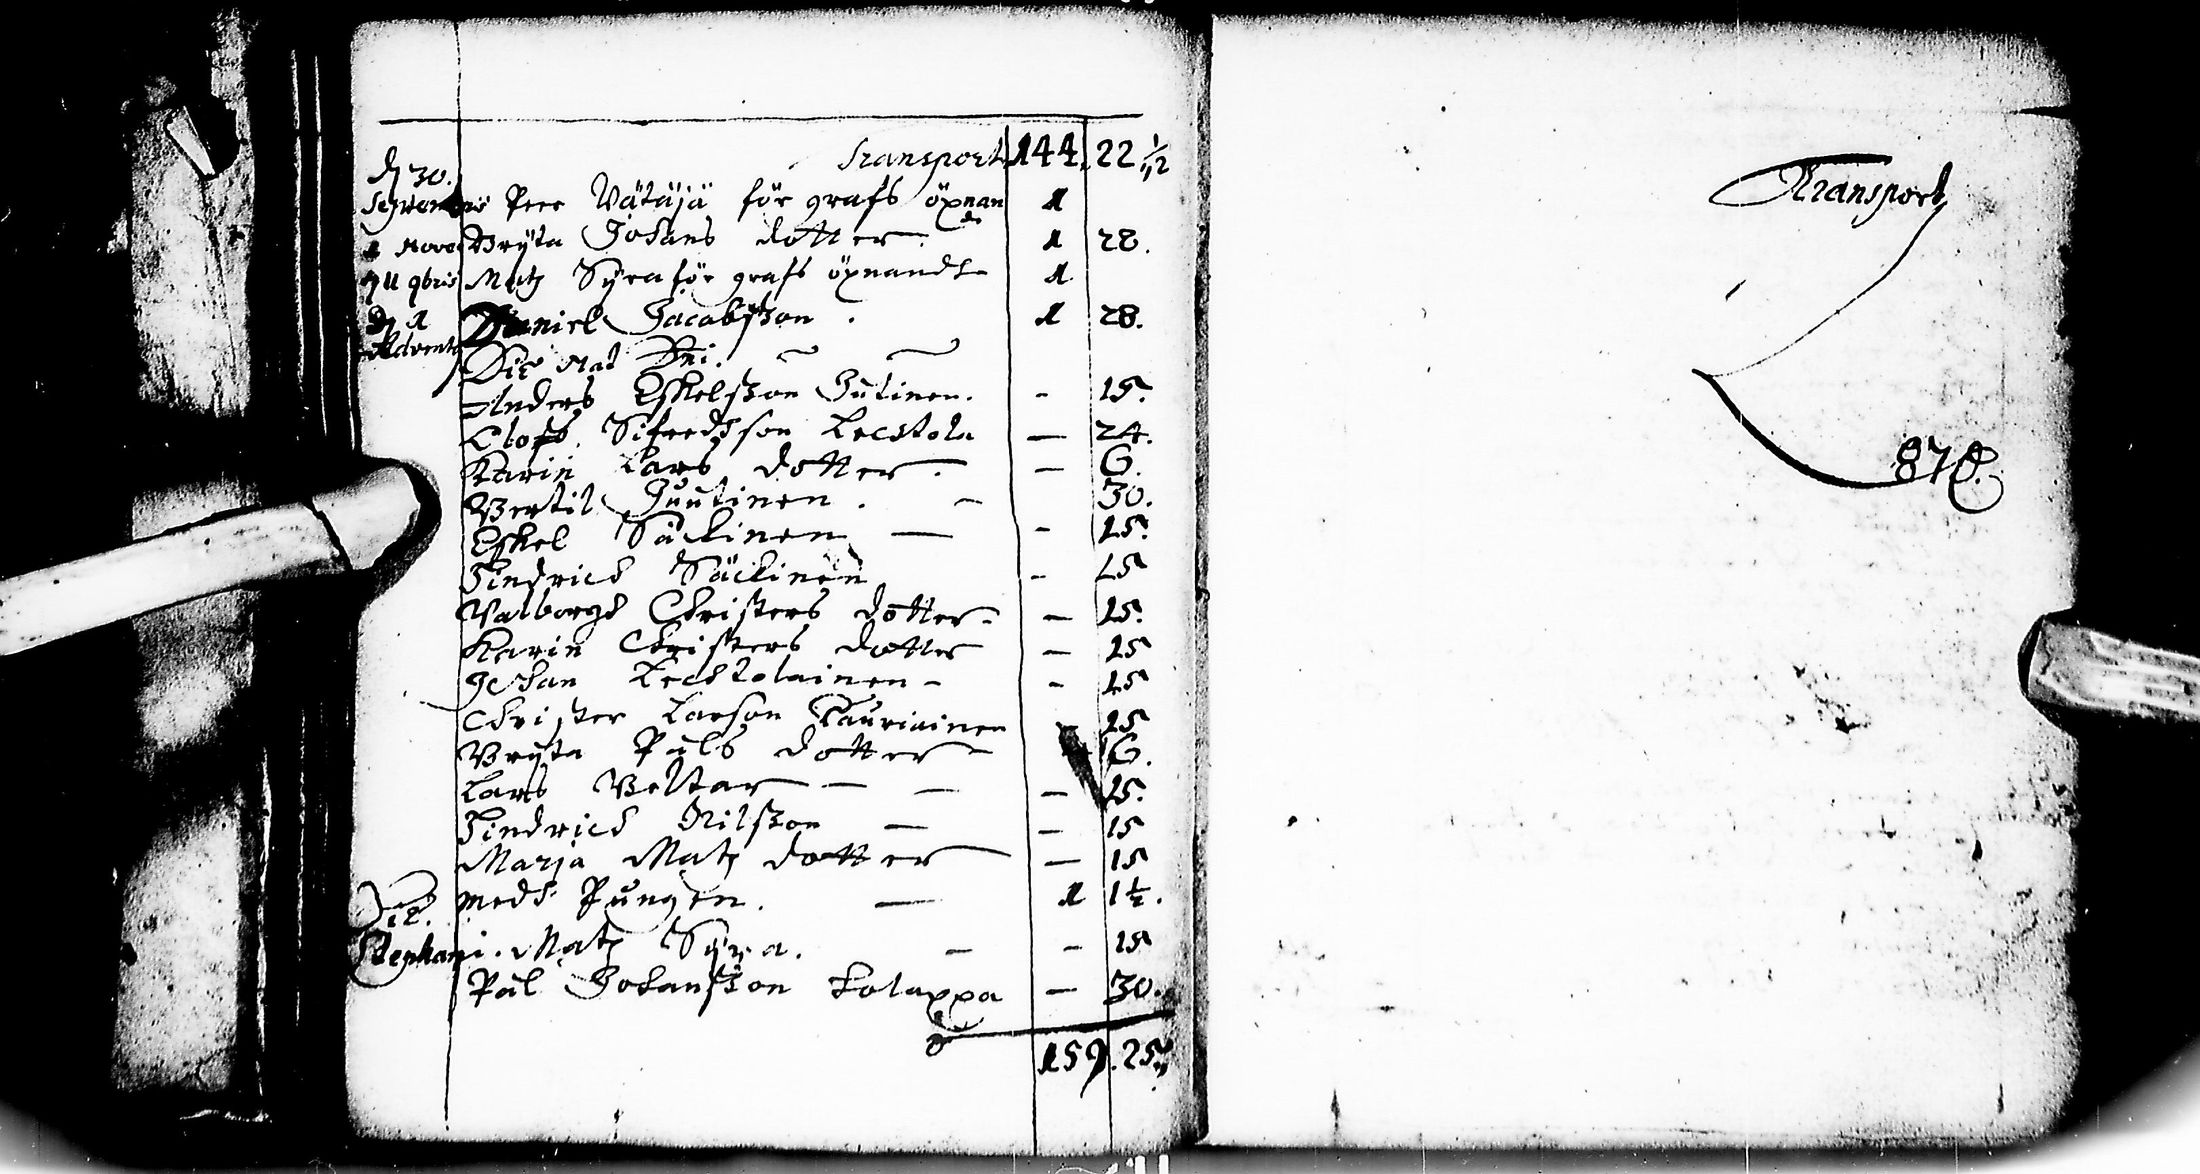 Transport 144. 22 1/12
dj 30.
Septembris Peer Vätäjä för grafs öpnan 1
de
1 Novo Bryta Johans dotter 1 28.
dj 11 9bris Matz Syra för grafs öpnande 1
dj 1 Daniel Jacobszon . 1 28.
Advent
Die Nat Dni.
Anders Eskelszon Jutinen. - 15.
Oloff Sifredsson Lechtola — 24.
Karin Lars dotter. — 6.
Bertil Juutinen. - 30.
Eskel Säckinen — - 15.
Hindrich Säckinen - 15
Valborgh Christers dotter - — 15.
Karin Christers dotter — 15
Johan Lechtolainen - - 15
Christer Larson Tauriainen 15
Bryta Påls dotter 6.
Lars Veltar — — — 15.
Hindrich Nilszon — — 15
Marja Matz dotter — 15
medh Pungen. — 1 1½.
Die
Stephani. Matz Syra. — - 15
Pål Johanszon Kolappa — 30.
159. 25
Transport
878.